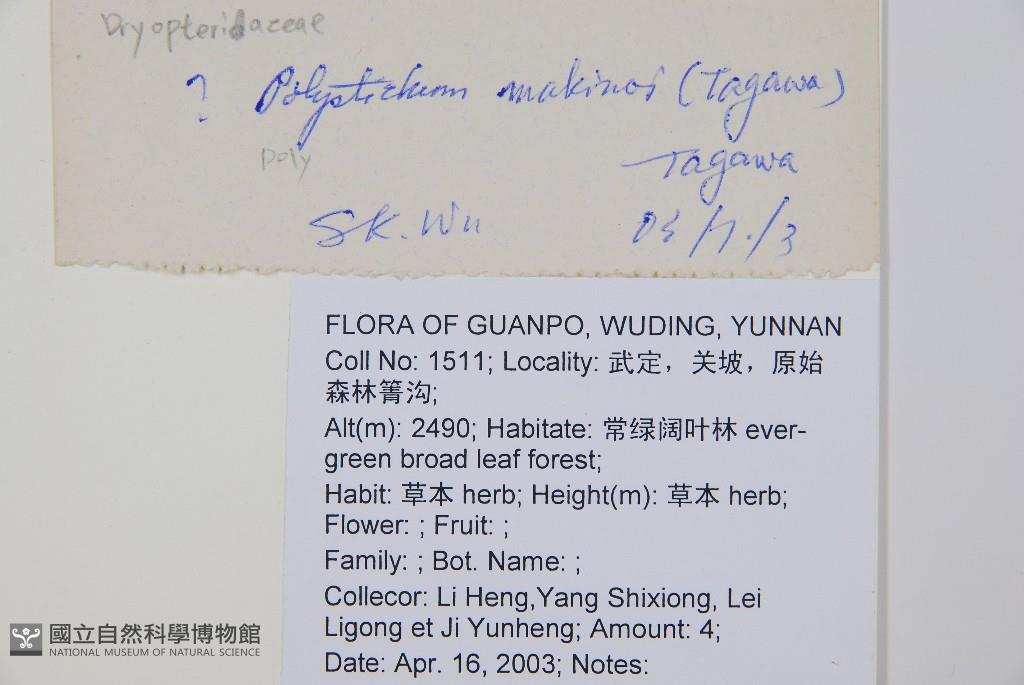 Dryopteridaceae
? Polystichum makinoi (Tagawa)
Poly Tagawa
SK. Wu
FLORA OF GUANPO, WUDING, YUNNAN
Coll No: 1511; Locality: 武定，关坡，原始
森林箐沟;
Alt(m): 2490; Habitate: 常绿阔叶林 ever-
green broad leaf forest;
Habit: 草本 herb; Height(m): 草本 herb;
Flower: ; Fruit: ;
Family: ; Bot. Name: ;
Collecor: Li Heng,Yang Shixiong, Lei
Ligong et Ji Yunheng; Amount: 4;
Date: Apr. 16, 2003; Notes:
國立自然科學博物館
NATIONAL MUSEUM OF NATURAL SCIENCE